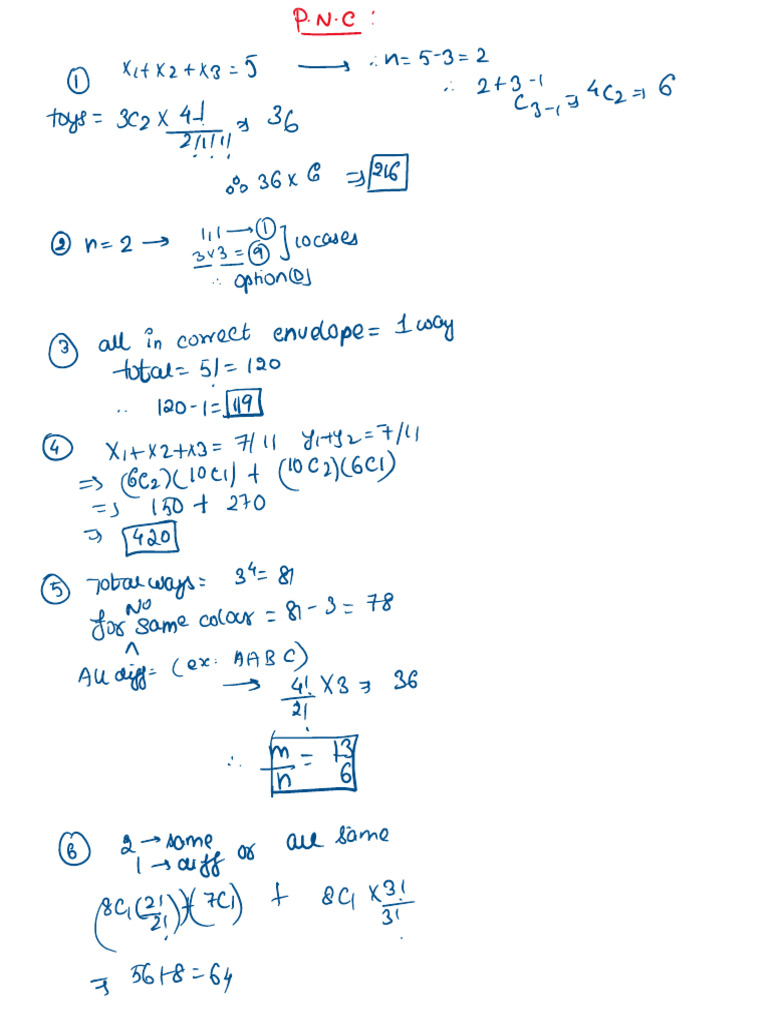 P.N.C :
① x1+x2+x3=5 ⟶ ∴n=5-3=2
∴ 2+3-1C3-1 ⇒ 4C2 ⇒ 6
toys = 3C2 × 4!/2!1!1! ⇒ 36
∴ 36 × 6 ⇒ 216
② n=2 → 1,1 → ①
3×3 = ⑨ ] 10 cases
∴ option(D)
③ all in correct envelope = 1 way
total = 5! = 120
∴ 120-1 = 119
④ x1+x2+x3 = 7/11 y1+y2 = 7/11
⇒ (6C2)(10C1) + (10C2)(6C1)
⇒ 150 + 270
⇒ 420
⑤ Total ways = 3^4 = 81
for NO same colour = 81-3 = 78
All diff = (ex: AABC)
→ 4!/2! × 3 ⇒ 36
∴ m/n = 13/6
⑥ 2 → same
1 → diff or all same
(8C1(2!/2!))×(7C1) + 8C1 × 3!/3!
⇒ 56+8 = 64